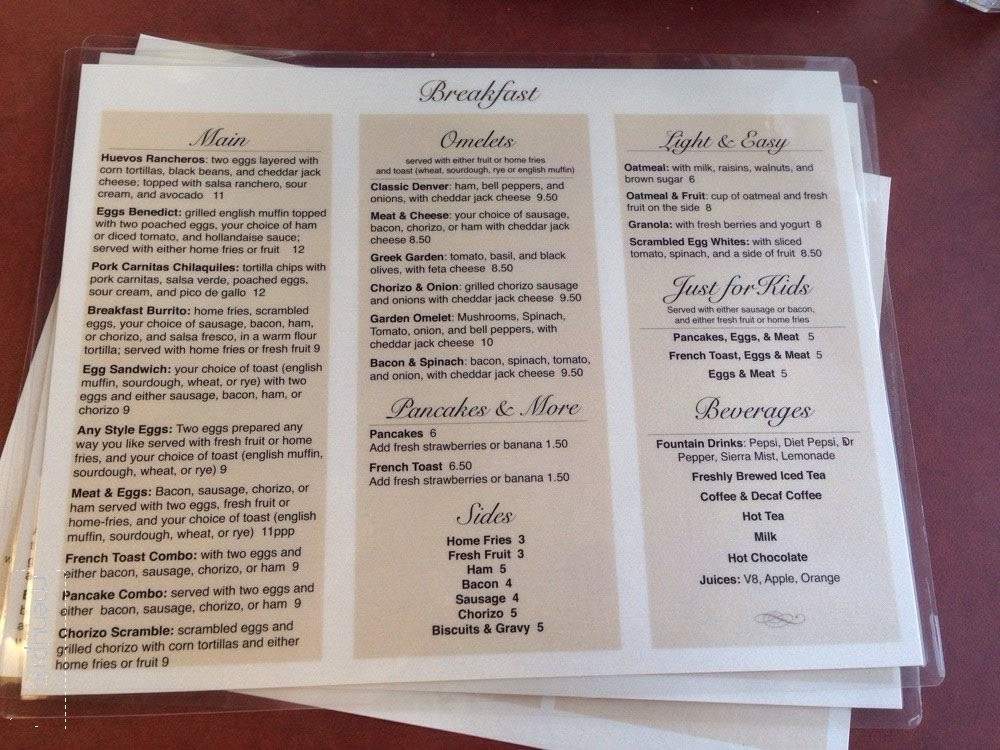 Breakfast
Main
Huevos Rancheros: two eggs layered with
corn tortillas, black beans, and cheddar jack
cheese; topped with salsa ranchero, sour
cream, and avocado 11
Eggs Benedict: grilled english muffin topped
with two poached eggs, your choice of ham
or diced tomato, and hollandaise sauce;
served with either home fries or fruit 12
Pork Carnitas Chilaquiles: tortilla chips with
pork carnitas, salsa verde, poached eggs,
sour cream, and pico de gallo 12
Breakfast Burrito: home fries, scrambled
eggs, your choice of sausage, bacon, ham,
or chorizo, and salsa fresco, in a warm flour
tortilla; served with home fries or fresh fruit 9
Egg Sandwich: your choice of toast (english
muffin, sourdough, wheat, or rye) with two
eggs and either sausage, bacon, ham, or
chorizo 9
Any Style Eggs: Two eggs prepared any
way you like served with fresh fruit or home
fries, and your choice of toast (english muffin,
sourdough, wheat, or rye) 9
Meat & Eggs: Bacon, sausage, chorizo, or
ham served with two eggs, fresh fruit or
home-fries, and your choice of toast (english
muffin, sourdough, wheat, or rye) 11ppp
French Toast Combo: with two eggs and
either bacon, sausage, chorizo, or ham 9
Pancake Combo: served with two eggs and
either bacon, sausage, chorizo, or ham 9
Chorizo Scramble: scrambled eggs and
grilled chorizo with corn tortillas and either
home fries or fruit 9
Omelets
served with either fruit or home fries
and toast (wheat, sourdough, rye or english muffin)
Classic Denver: ham, bell peppers, and
onions, with cheddar jack cheese 9.50
Meat & Cheese: your choice of sausage,
bacon, chorizo, or ham with cheddar jack
cheese 8.50
Greek Garden: tomato, basil, and black
olives, with feta cheese 8.50
Chorizo & Onion: grilled chorizo sausage
and onions with cheddar jack cheese 9.50
Garden Omelet: Mushrooms, Spinach,
Tomato, onion, and bell peppers, with
cheddar jack cheese 10
Bacon & Spinach: bacon, spinach, tomato,
and onion, with cheddar jack cheese 9.50
Pancakes & More
Pancakes 6
Add fresh strawberries or banana 1.50
French Toast 6.50
Add fresh strawberries or banana 1.50
Sides
Home Fries 3
Fresh Fruit 3
Ham 5
Bacon 4
Sausage 4
Chorizo 5
Biscuits & Gravy 5
Light & Easy
Oatmeal: with milk, raisins, walnuts, and
brown sugar 6
Oatmeal & Fruit: cup of oatmeal and fresh
fruit on the side 8
Granola: with fresh berries and yogurt 8
Scrambled Egg Whites: with sliced
tomato, spinach, and a side of fruit 8.50
Just for Kids
Served with either sausage or bacon,
and either fresh fruit or home fries
Pancakes, Eggs, & Meat 5
French Toast, Eggs & Meat 5
Eggs & Meat 5
Beverages
Fountain Drinks: Pepsi, Diet Pepsi, Dr
Pepper, Sierra Mist, Lemonade
Freshly Brewed Iced Tea
Coffee & Decaf Coffee
Hot Tea
Milk
Hot Chocolate
Juices: V8, Apple, Orange